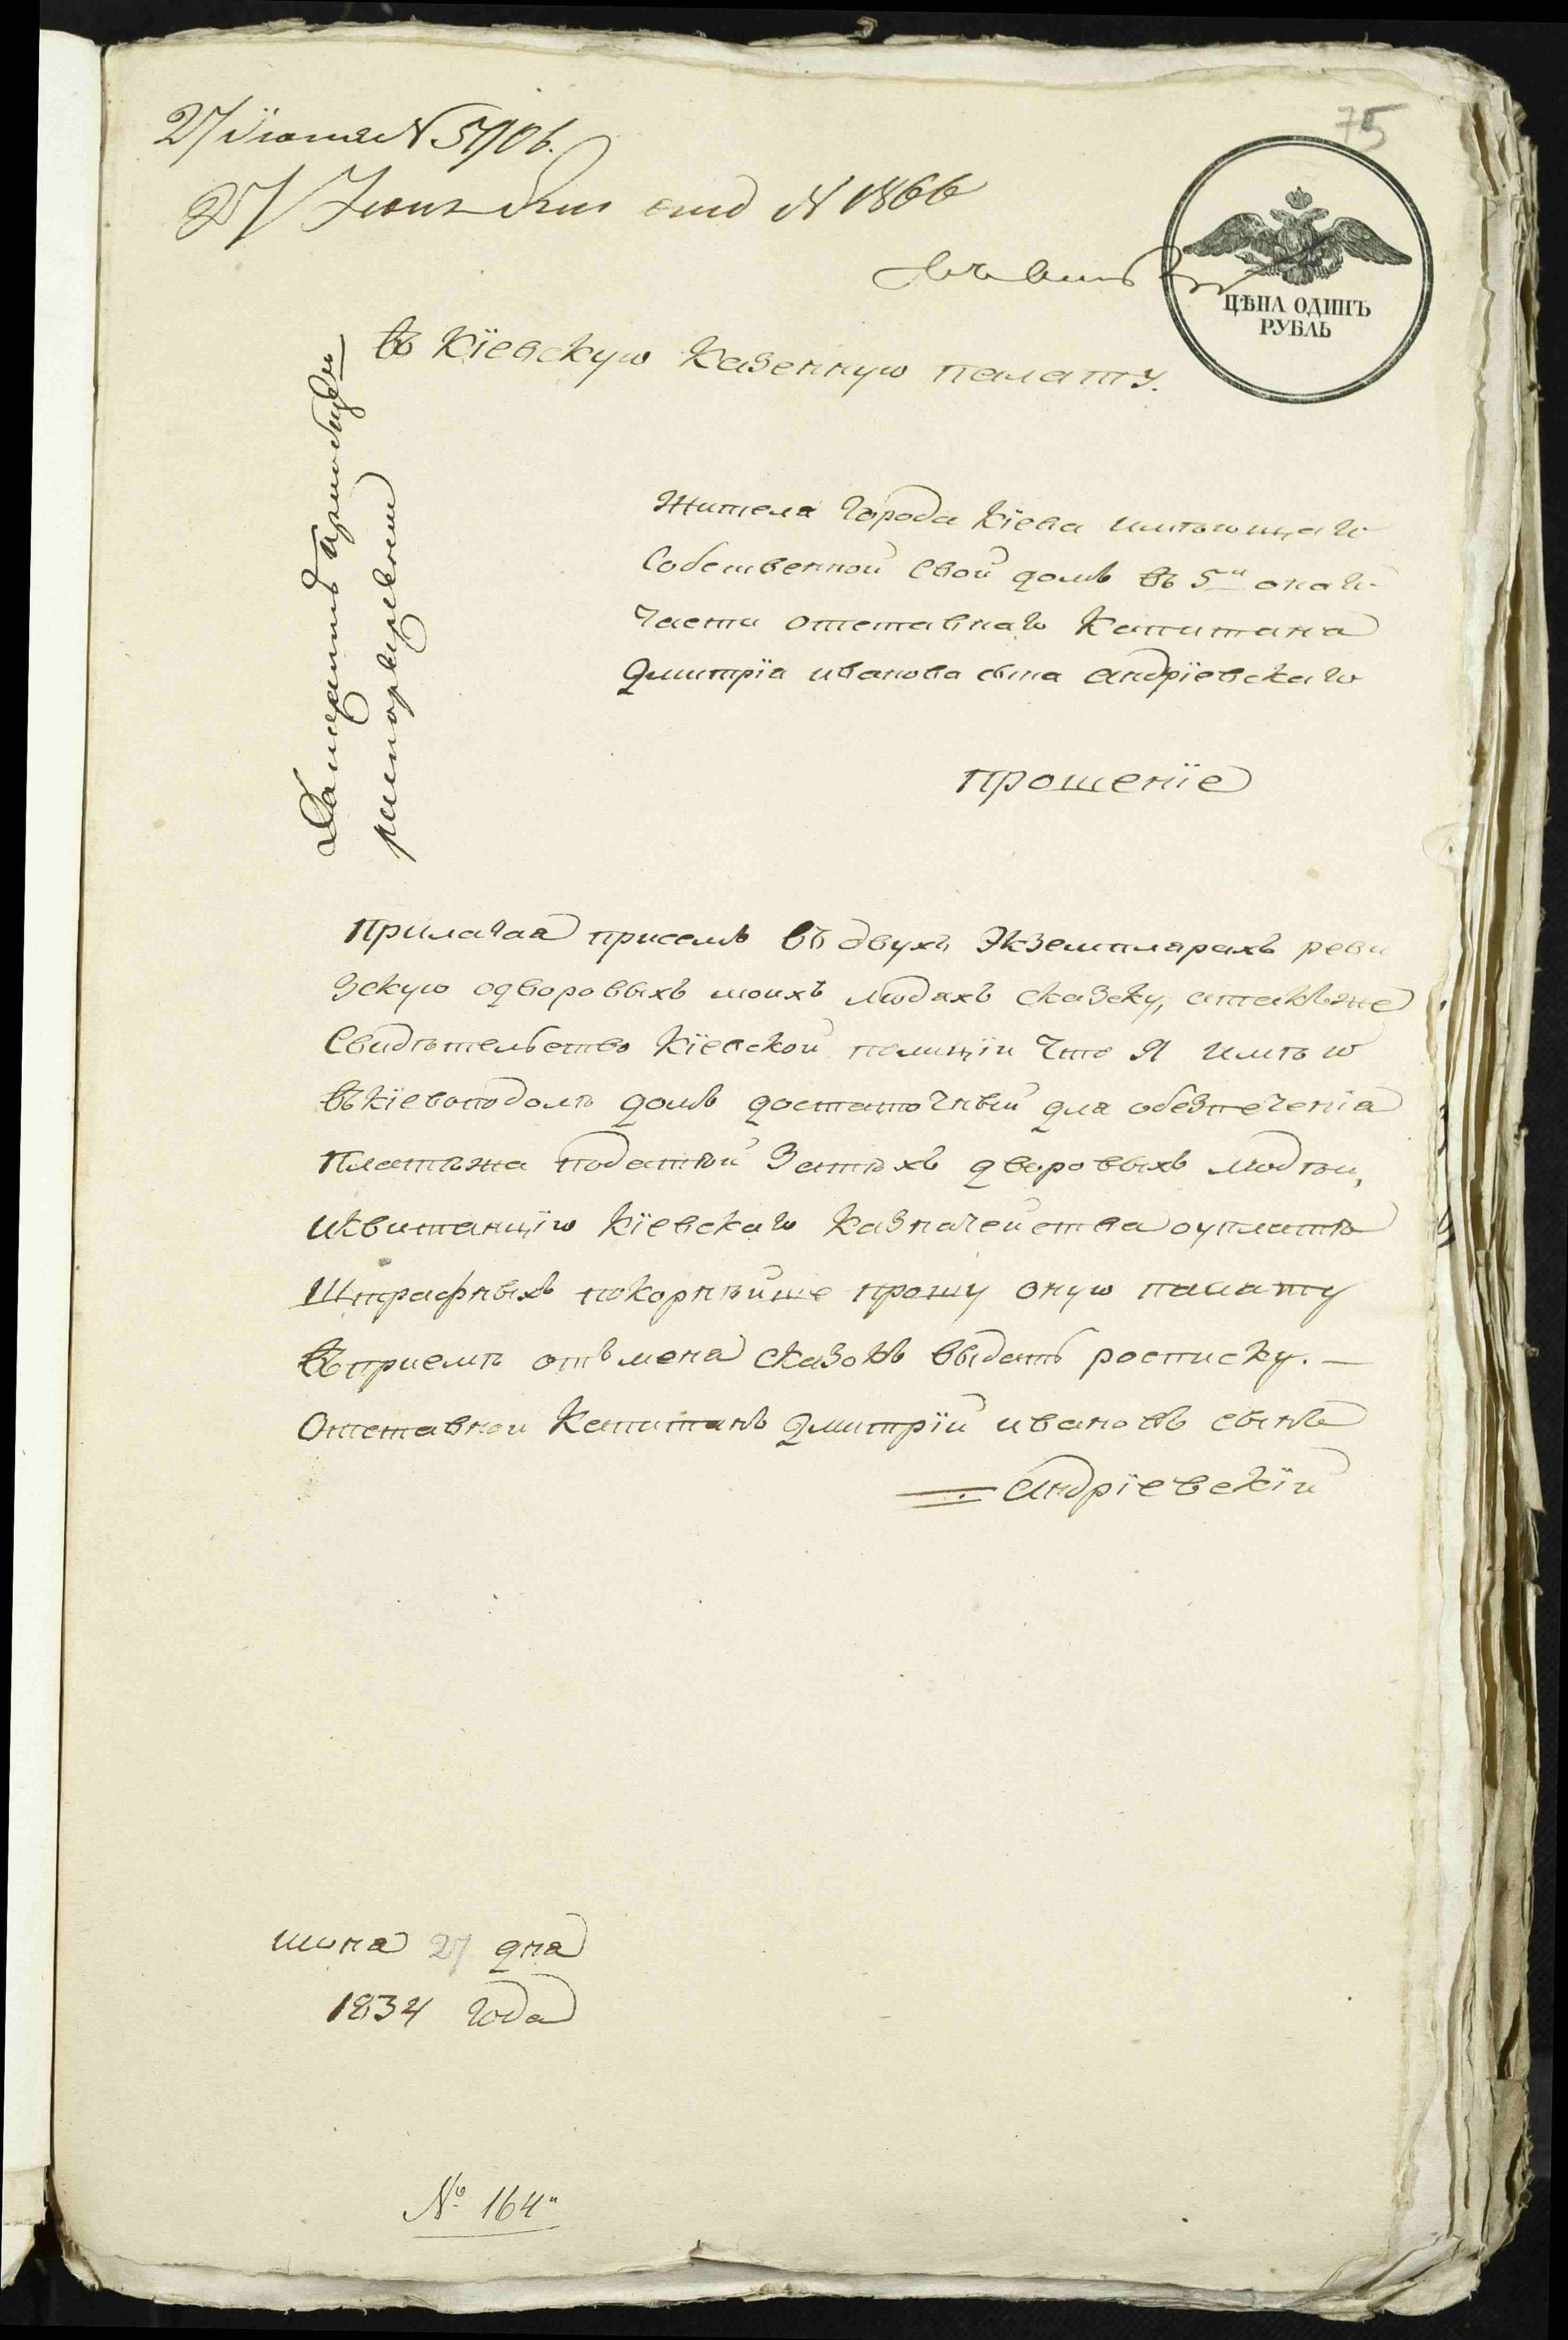 75
27 іюня N 5706.
27 Июня N 1866
ЦѢНА ОДИНЪ
РУБЛЬ
въ Кіевскую Казенную палату.
Жителя Города Кіева имѣющаго
Собственной Свой домъ въ 5й онаго
Части отставнаго Капитана
Дмитрія иванова сына Андріевскаго
прошеніе
Прилагая присемъ въ двухъ Экземплярахъ реви
зскую одворовыхъ моихъ людяхъ сказку, атакъже
Свидѣтельство Кіевской полиціи Что Я имѣю
въ кіевоподолѣ домъ достаточный для обезпеченія
Платѣжа податѣй Затѣхъ дворовыхъ людѣй,
иквитанцію Кіевскаго Казначейства оуплатѣ
Штрафныхъ покорнѣйше прошу оную палату
въ приемѣ отъ меня сказокъ выдать росписку. —
Отставной Капитанъ Дмитрій ивановъ сынъ
Андріевскій
июня 27 дня
1834 года
№ 164